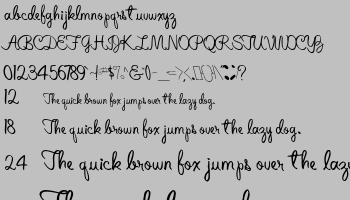 abcdefghijklmnopqrstuvwxyz
ABCDEFGHIJKLMNOPQRSTUVWXYZ
0123456789
12 The quick brown fox jumps over the lazy dog.
18 The quick brown fox jumps over the lazy dog.
24 The quick brown fox jumps over the lazy